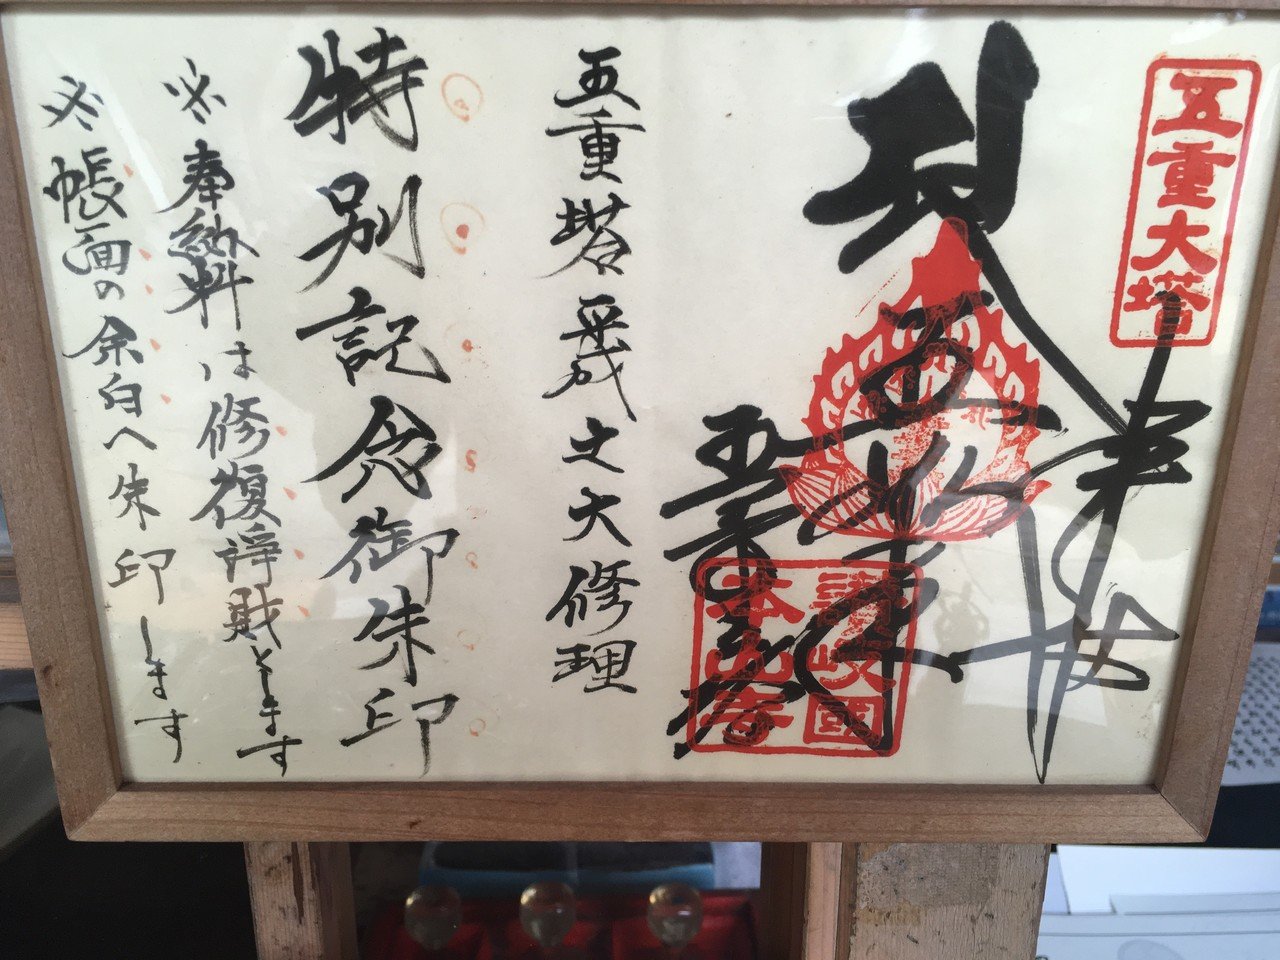 五重大塔
讃岐國
本山寺
五重塔平成之大修理
特別記念御朱印
※奉納料は修復浄財とします
※帳面の余白へ朱印します